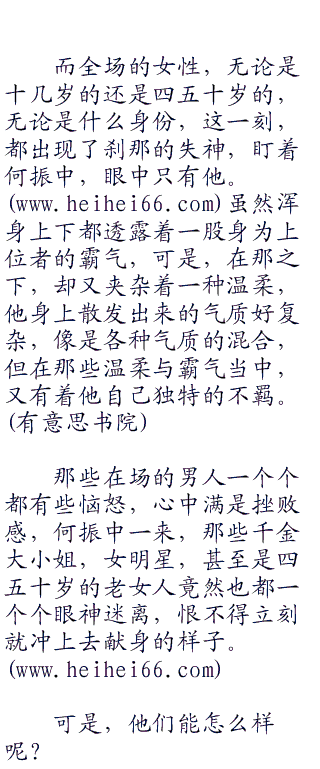 而全场的女性，无论是
十几岁的还是四五十岁的，
无论是什么身份，这一刻，
都出现了刹那的失神，盯着
何振中，眼中只有他。
(www.heihei66.com)虽然浑
身上下都透露着一股身为上
位者的霸气，可是，在那之
下，却又夹杂着一种温柔，
他身上散发出来的气质好复
杂，像是各种气质的混合，
但在那些温柔与霸气当中，
又有着他自己独特的不羁。
(有意思书院)
那些在场的男人一个个
都有些恼怒，心中满是挫败
感，何振中一来，那些千金
大小姐，女明星，甚至是四
五十岁的老女人竟然也都一
个个眼神迷离，恨不得立刻
就冲上去献身的样子。
(www.heihei66.com)
可是，他们能怎么样
呢？